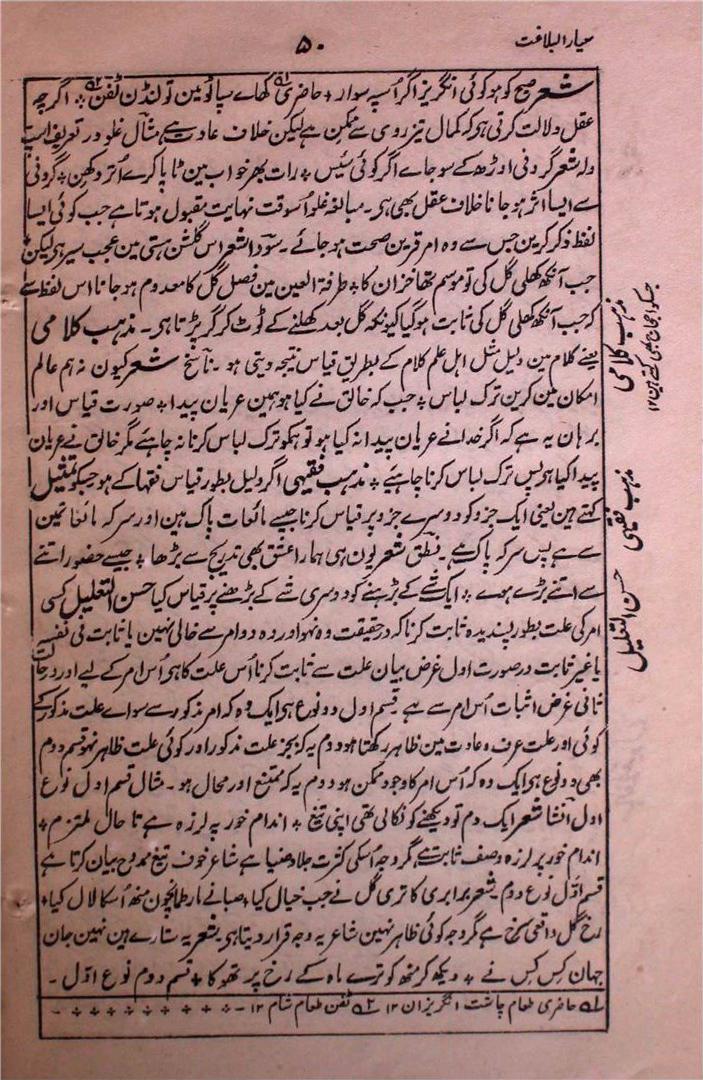 معیار البلاغت
۵۰
شعر صبح کو ہو کوئی انگریز اگر اسپہ سوار + حاضری کھاے سپاٹو مین تو لنڈن ٹفن + اگرچہ
عقل دلالت کرتی ہی کہ کمال تیز روی سے ممکن ہے لیکن خلاف عادت ہے مثال غلو در تعریف اسپ
ولہ شعر گردنی اوڑھ کے سو جاے اگر کوئی سئیس + رات بھر خواب مین ٹاپا کرے اُتر دکھن + گردنی
سے ایسا اثر ہو جانا خلاف عقل بھی ہی۔ مبالغہ غلو اُسوقت نہایت مقبول ہوتا ہے جب کوئی ایسا
لفظ ذکر کرین جس سے وہ امر قرین صحت ہو جائے۔ سودا شعر اس گلشن ہستی مین عجب سیر ہی لیکن
جب آنکھ کھلی گل کی تو موسم تھا خزان کا + طرفۃ العین مین فصل گل کا معدوم ہو جانا اس لفظ سے
کہ جب آنکھ کھلی گل کی ثابت ہو گیا کیونکہ گل بعد کھلنے کے ٹوٹ کر گر پڑتا ہی۔ مذہب کلامی
یعنے کلام مین دلیل مثل اہل علم کلام کے بطریق قیاس نتیجہ دیتی ہو۔ ناسخ شعر کیون نہ ہم عالم
امکان مین کرین ترک لباس + جب کہ خالق نے کیا ہو ہمین عریان پیدا + صورت قیاس اور
برہان یہ ہے کہ اگر خدا نے عریان پیدا نہ کیا ہو تو ہمکو ترک لباس کرنا نہ چاہئے مگر خالق نے عریان
پیدا کیا ہی پس ترک لباس کرنا چاہیے + مذہب فقہی اگر دلیل بطور قیاس فقہا کے ہو جسکو تمثیل
کہتے ہین یعنی ایک جزو کو دوسرے جزو پر قیاس کرنا جیسے مائعات پاک ہین اور سرکہ مائعات مین
سے ہے پس سرکہ پاک ہے۔ نطق شعر یون ہی ہمارا عشق بھی تدریج سے بڑھا + جیسے حضور اتنے
سے اتنے بڑے ہوے + ایک شے کے بڑہنے کو دوسری شے کے بڑھنے پر قیاس کیا حسن التعلیل کسی
امر کی علت بطور پسندیدہ ثابت کرنا کہ درحقیقت وہ نہو اور وہ دو امر سے خالی نہین یا ثابت فی نفسہ
یا غیر ثابت در صورت اول غرض بیان علت سے ثابت کرنا اُس علت کا ہی اُس امر کے لیے اور درحالت
ثانی غرض اثبات اُس امر سے ہے قسم اول دو نوع ہی ایک وہ کہ امر مذکور سے سواے علت مذکور کے
کوئی اور علت عرف و عادت مین ظاہر رکھتا ہو دوم یہ کہ بجز علت مذکور اور کوئی علت ظاہر نہو قسم دوم
بھی دو نوع ہی ایک وہ کہ اُس امر کا وجود ممکن ہو دوم یہ کہ ممتنع اور محال ہو۔ مثال قسم اول نوع
اول اَنشا شعر ایک دم تو دیکھنے کو نکالی تھی اپنی تیغ + اندام خور پہ لرزہ ہے تا حال ملتزم +
اندام خور پر لرزہ وصف ثابت ہے مگر وجہ اُسکی کثرت جلا و ضیا ہے شاعر خوف تیغ ممدوح بیان کرتا ہے
قسم اوّل نوع دوم شعر برابری کا تری گل نے جب خیال کیا + صبا نے مار طمانچون منھ اُسکا لال کیا +
رخ گل واقعی سرخ ہے مگر وجہ کوئی ظاہر نہین شاعر یہ وجہ قرار دیتا ہی شعر یہ ستارے ہین نہین جان
جہان کس کس نے + دیکھ کر منھ کو ترے ماہ کے رخ پر تھوکا + قسم دوم نوع اوّل۔
۱ حاضری طعام چاشت انگریزان ۱۲ ۲ ٹفن طعام شام ۱۲
مذہب کلامی
جسکو احتجاج بھی کہتے ہین ۱۲
مذہب فقہی
حسن التعلیل